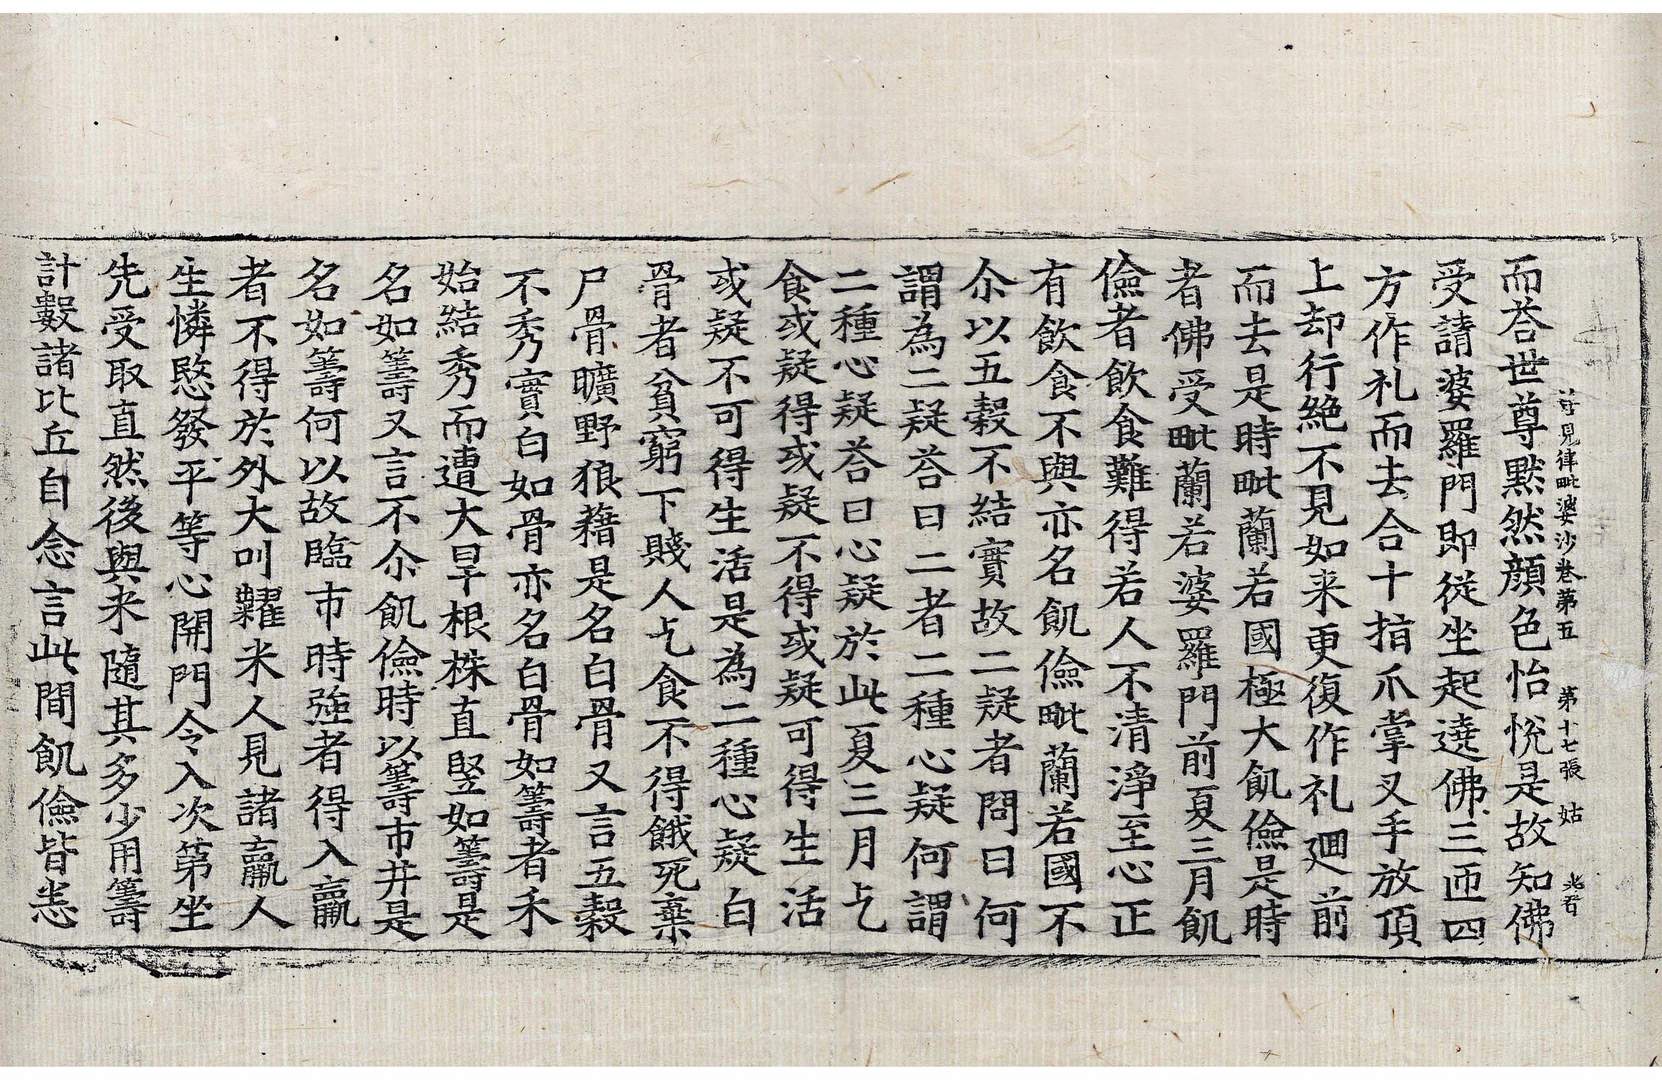 善見律毗婆沙卷第五 第十七張 姑
而荅世尊黙然顔色怡悅是故知佛
受請婆羅門即從坐起遶佛三匝四
方作礼而去合十指爪掌叉手放頂
上却行絶不見如来更復作礼廻前
而去是時毗蘭若國極大飢儉是時
者佛受毗蘭若婆羅門前夏三月飢
儉者飲食難得若人不清淨至心正
有飲食不與亦名飢儉毗蘭若國不
尒以五穀不結實故二疑者問曰何
謂為二疑荅曰二者二種心疑何謂
二種心疑荅曰心疑於此夏三月乞
食或疑得或疑不得或疑可得生活
或疑不可得生活是為二種心疑白
骨者貧窮下賤人乞食不得餓死棄
尸骨曠野狼藉是名白骨又言五穀
不秀實白如骨亦名白骨如籌者禾
始結秀而遭大旱根株直竪如籌是
名如籌又言不尒飢儉時以籌市井是
名如籌何以故臨市時強者得入羸
者不得於外大叫糴米人見諸羸人
生憐愍發平等心開門令入次第坐
先受取直然後與米隨其多少用籌
計數諸比丘自念言此間飢儉皆悉